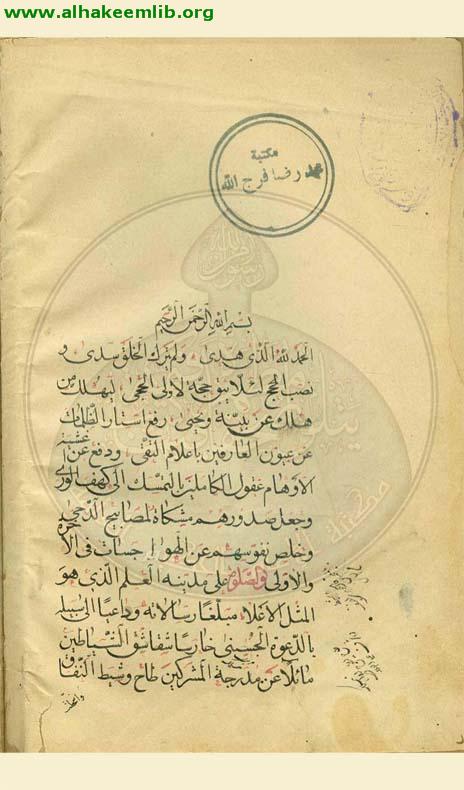 www.alhakeemlib.org
مكتبة
محمد رضا فرج الله
بسم الله الرحمن الرحيم
الحمد لله الذي هدى ، ولم يترك الخلق سدى و
نصب الحجج لئلا يبقى حجة لأولى الحجى ، ليهلك من
هلك عن بينة ويحيى ، رفع استار الظلمات
عن عيون العارفين باعلام التقى ، ودفع عن
الاوهام عقول الكاملين بالتمسك الى كهف الورى
وجعل صدورهم مشكاة لمصابيح الدجى
وخلص نفوسهم عن الهوا في
والاولى والصلوة على مدينة العلم الذي هو
المثل الاعلا مبلغا رسالاته وداعيا الى سبيله
بالدعوة الحسنى خارسا شقاشق الشياطين
مائلا عن مدرجة المشركين طاح وشيظ النفاق